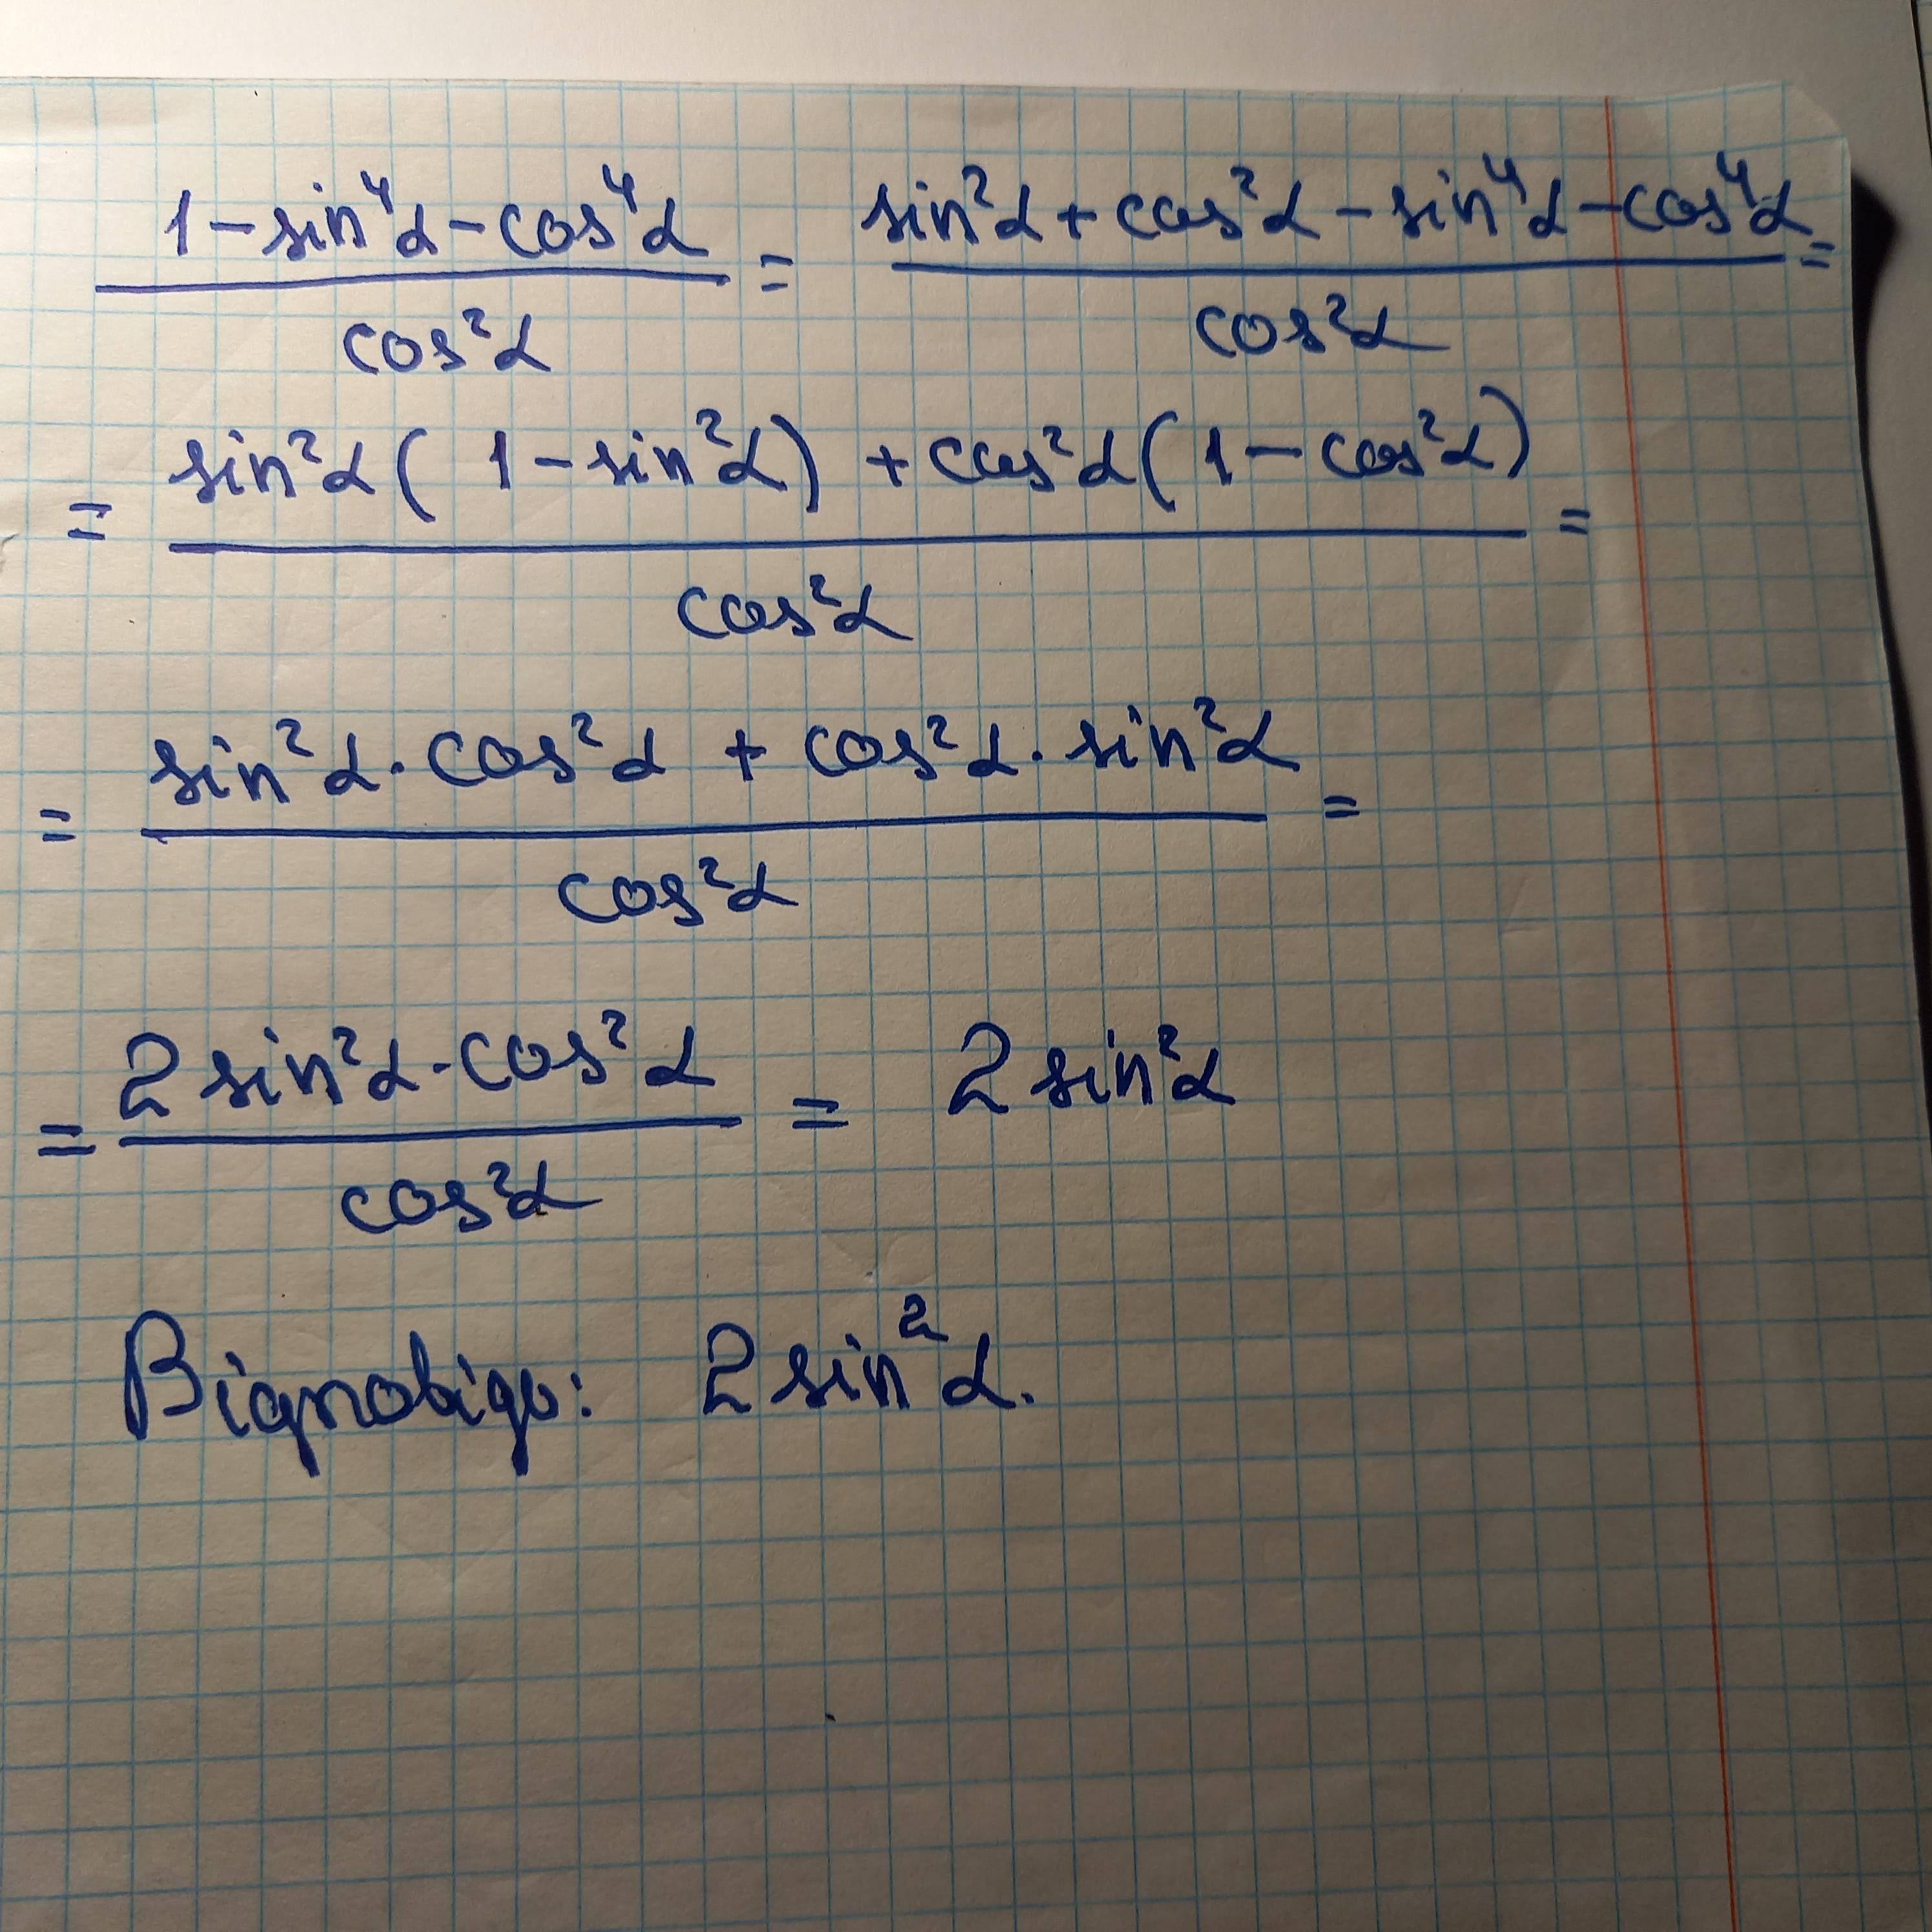 (1 - sin⁴α - cos⁴α) / cos²α = (sin²α + cos²α - sin⁴α - cos⁴α) / cos²α =
= (sin²α(1 - sin²α) + cos²α(1 - cos²α)) / cos²α =
= (sin²α · cos²α + cos²α · sin²α) / cos²α =
= (2 sin²α · cos²α) / cos²α = 2 sin²α
Відповідь: 2 sin²α.